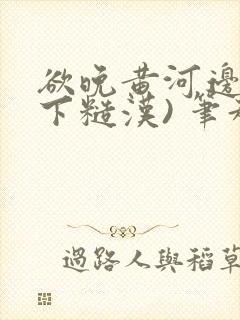 欲晚黄河邊
下糙漢) 筆
過路人與稻草